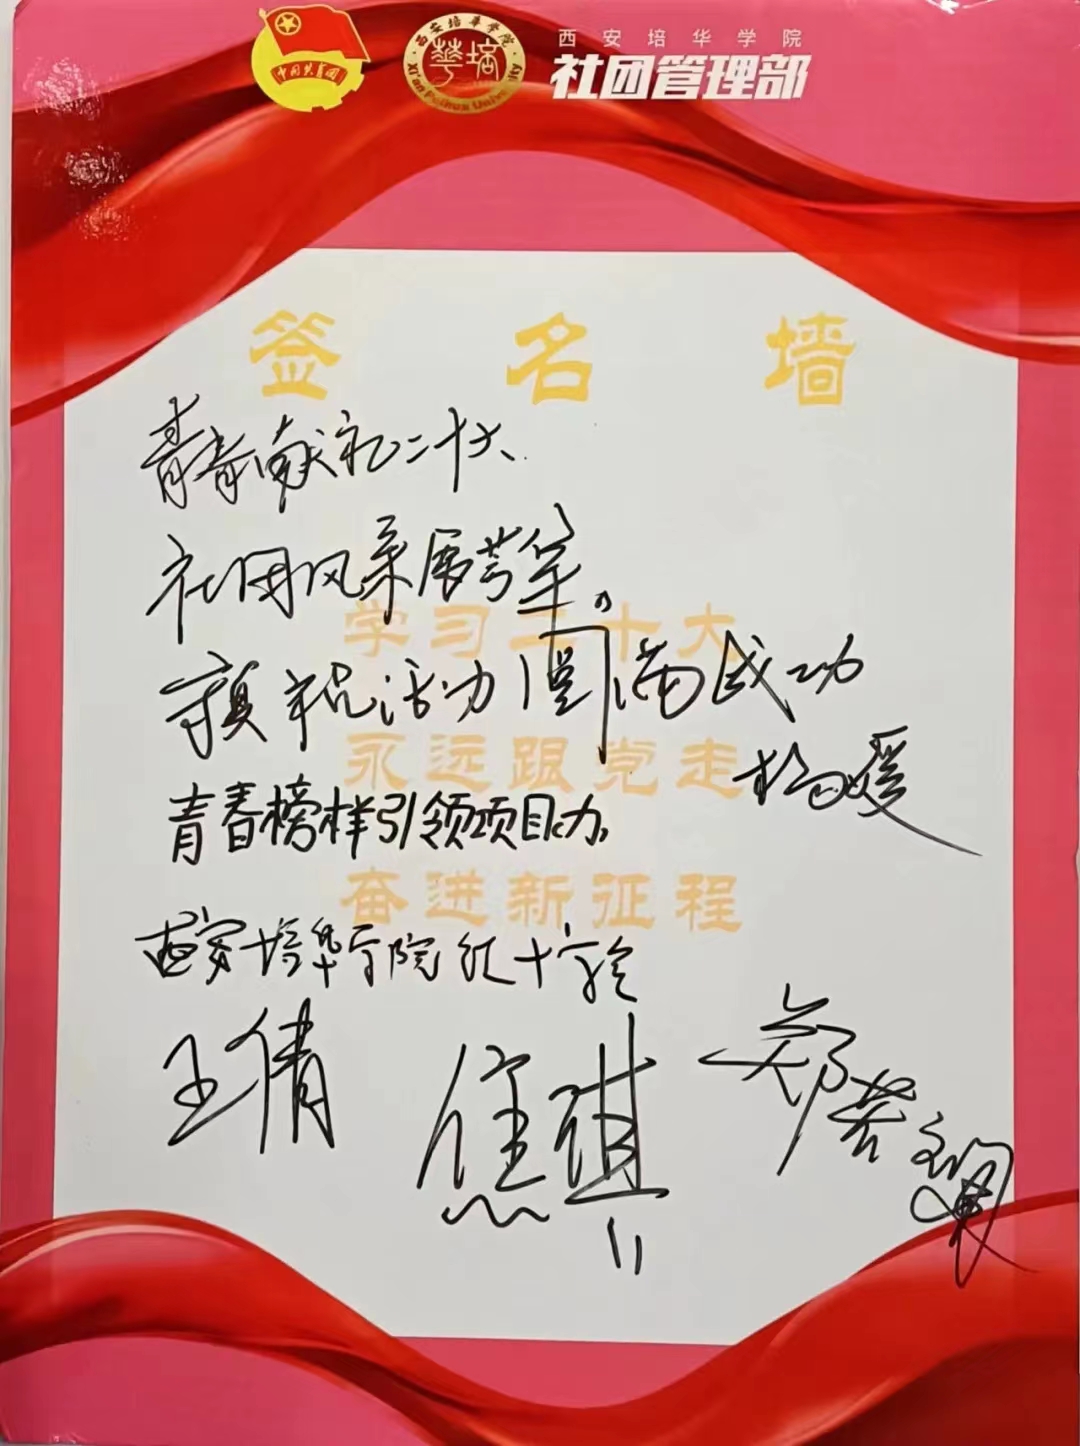 中国共青团
西安培华学院
XI'an Peihua University
華培
西安培华学院
社团管理部
签名墙
青春献礼二十大、
社团风采展芳华。
学习二十大
预祝活动圆满成功
永远跟党走
杨媛
青春榜样引领项目办
奋进新征程
西安培华学院红十字会
王倩
焦琪
郑